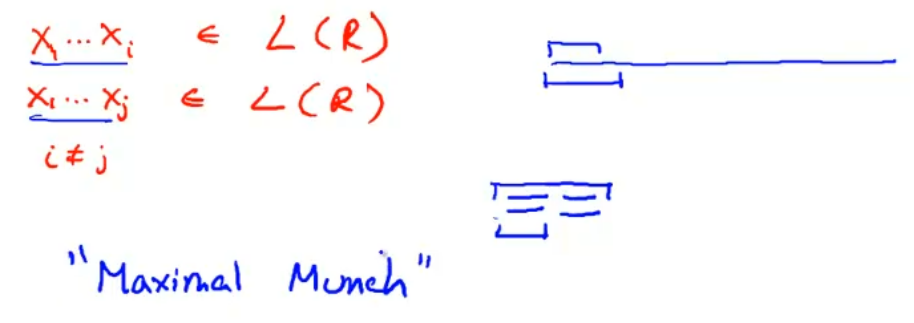 x₁...xᵢ ∈ L(R)
x₁...xⱼ ∈ L(R)
i ≠ j
==
"Maximal Munch"